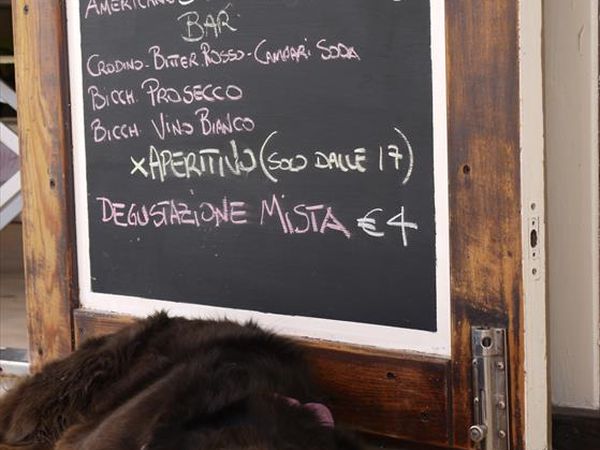 AMERICANO
BAR
CRODINO-BITTER ROSSO-CAMPARI SODA
BICCH. PROSECCO
BICCH. VINO BIANCO
x APERITIVO (SOLO DALLE 17)
DEGUSTAZIONE MISTA €4